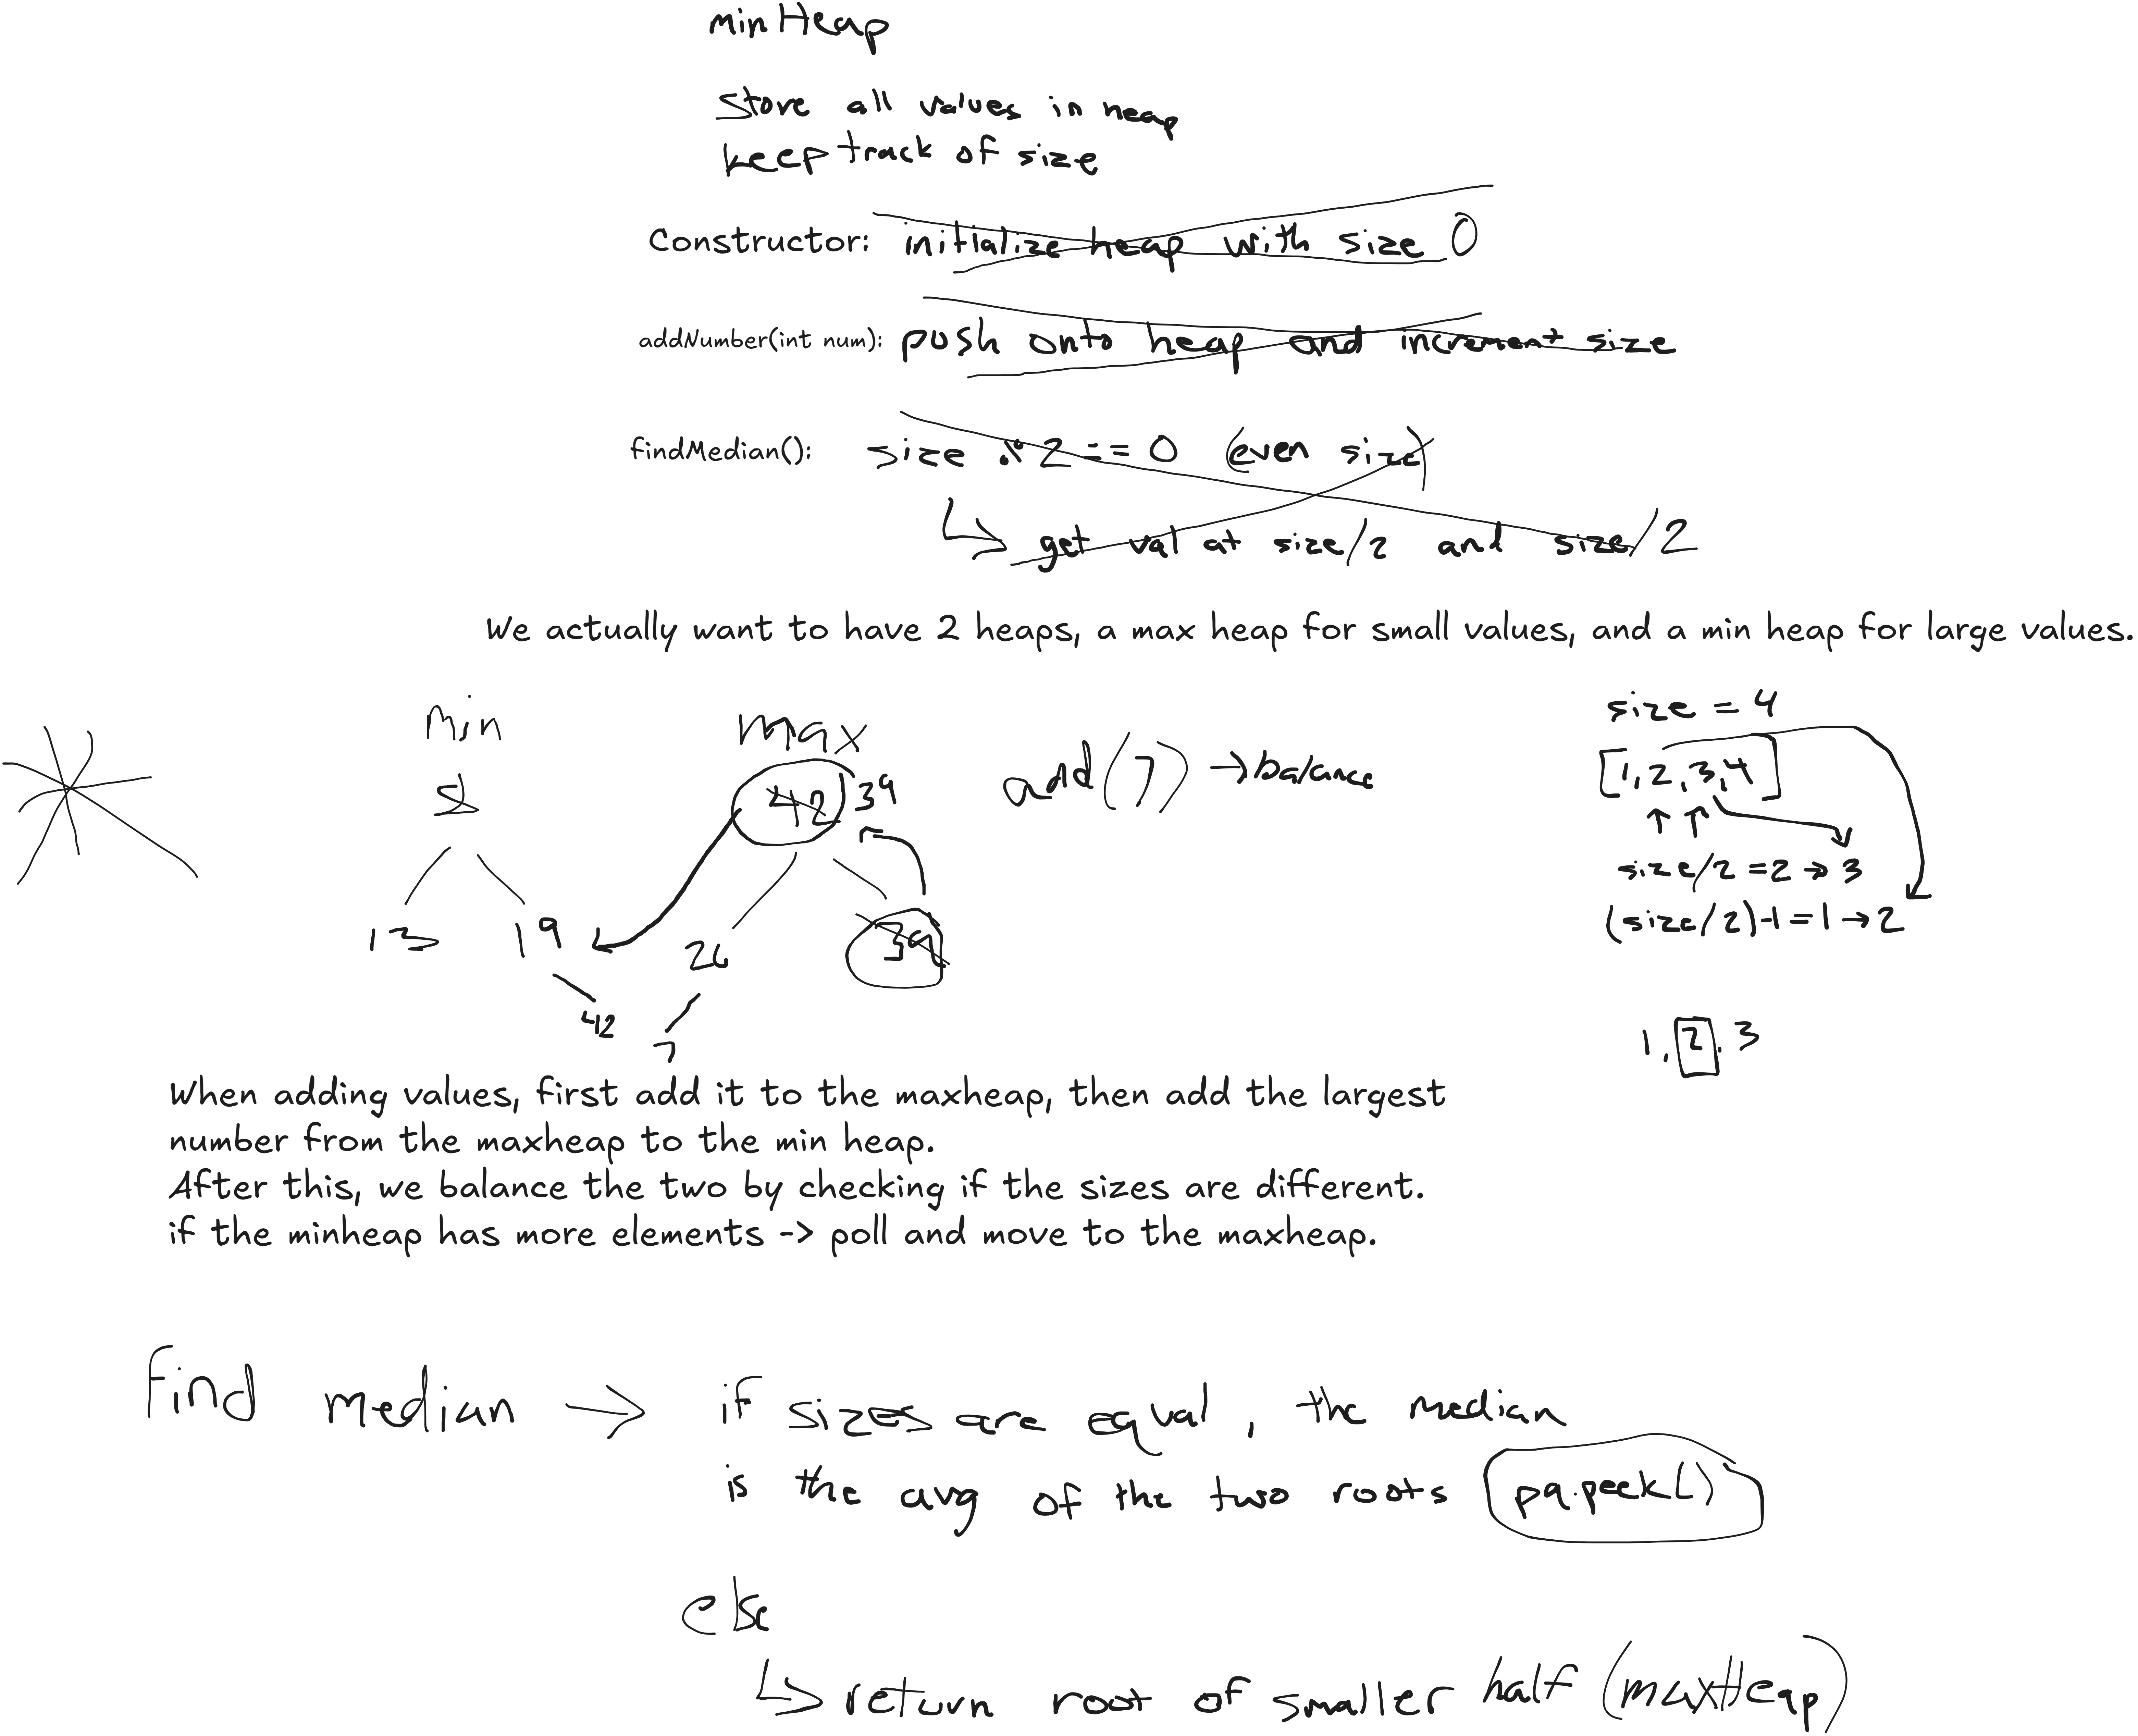 minHeap
store all values in heap
keep track of size
Constructor: initialize heap with size 0
addNumber(int num): push onto heap and increment size
findMedian(): size % 2 == 0 (even size)
↳ get val at size/2 and size/2
We actually want to have 2 heaps, a max heap for small values, and a min heap for large values.
min
max
5
42 39
13
19
26
39
42
7
add(7) → balance
size = 4
[1, 2, 3, 4]
↑ ↑
size/2 = 2 → 3
(size/2)-1 = 1 → 2
1, 2, 3
When adding values, first add it to the maxheap, then add the largest
number from the maxheap to the min heap.
After this, we balance the two by checking if the sizes are different.
if the minheap has more elements -> poll and move to the maxheap.
Find median → if sizes are equal, the median
is the avg of the two roots pq.peek()
else
↳ return root of smaller half (maxHeap)